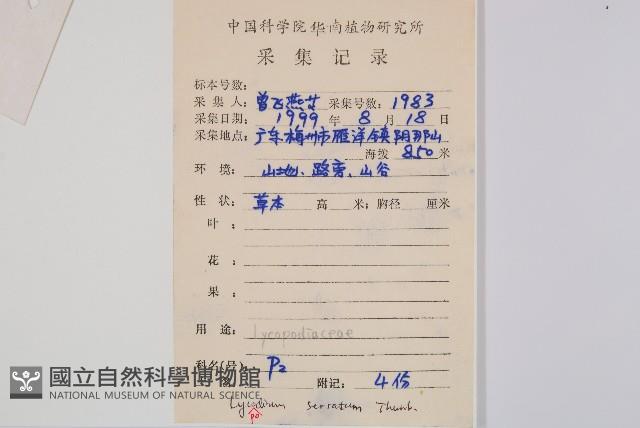 中国科学院华南植物研究所
采集记录
标本号数:
采集人: 曾飞燕 采集号数: 1983
采集日期: 1999 年 8 月 18 日
采集地点: 广东梅州市雁洋镇阴那山
海拨 850 米
环境: 山地、路旁、山谷
性状: 草本 高 米; 胸径 厘米
叶:
花:
果:
用途: Lycopodiaceae
科名(号) P2
附记: 4份
國立自然科學博物館
NATIONAL MUSEUM OF NATURAL SCIENCE
Lycodium serratum Thunb.
po